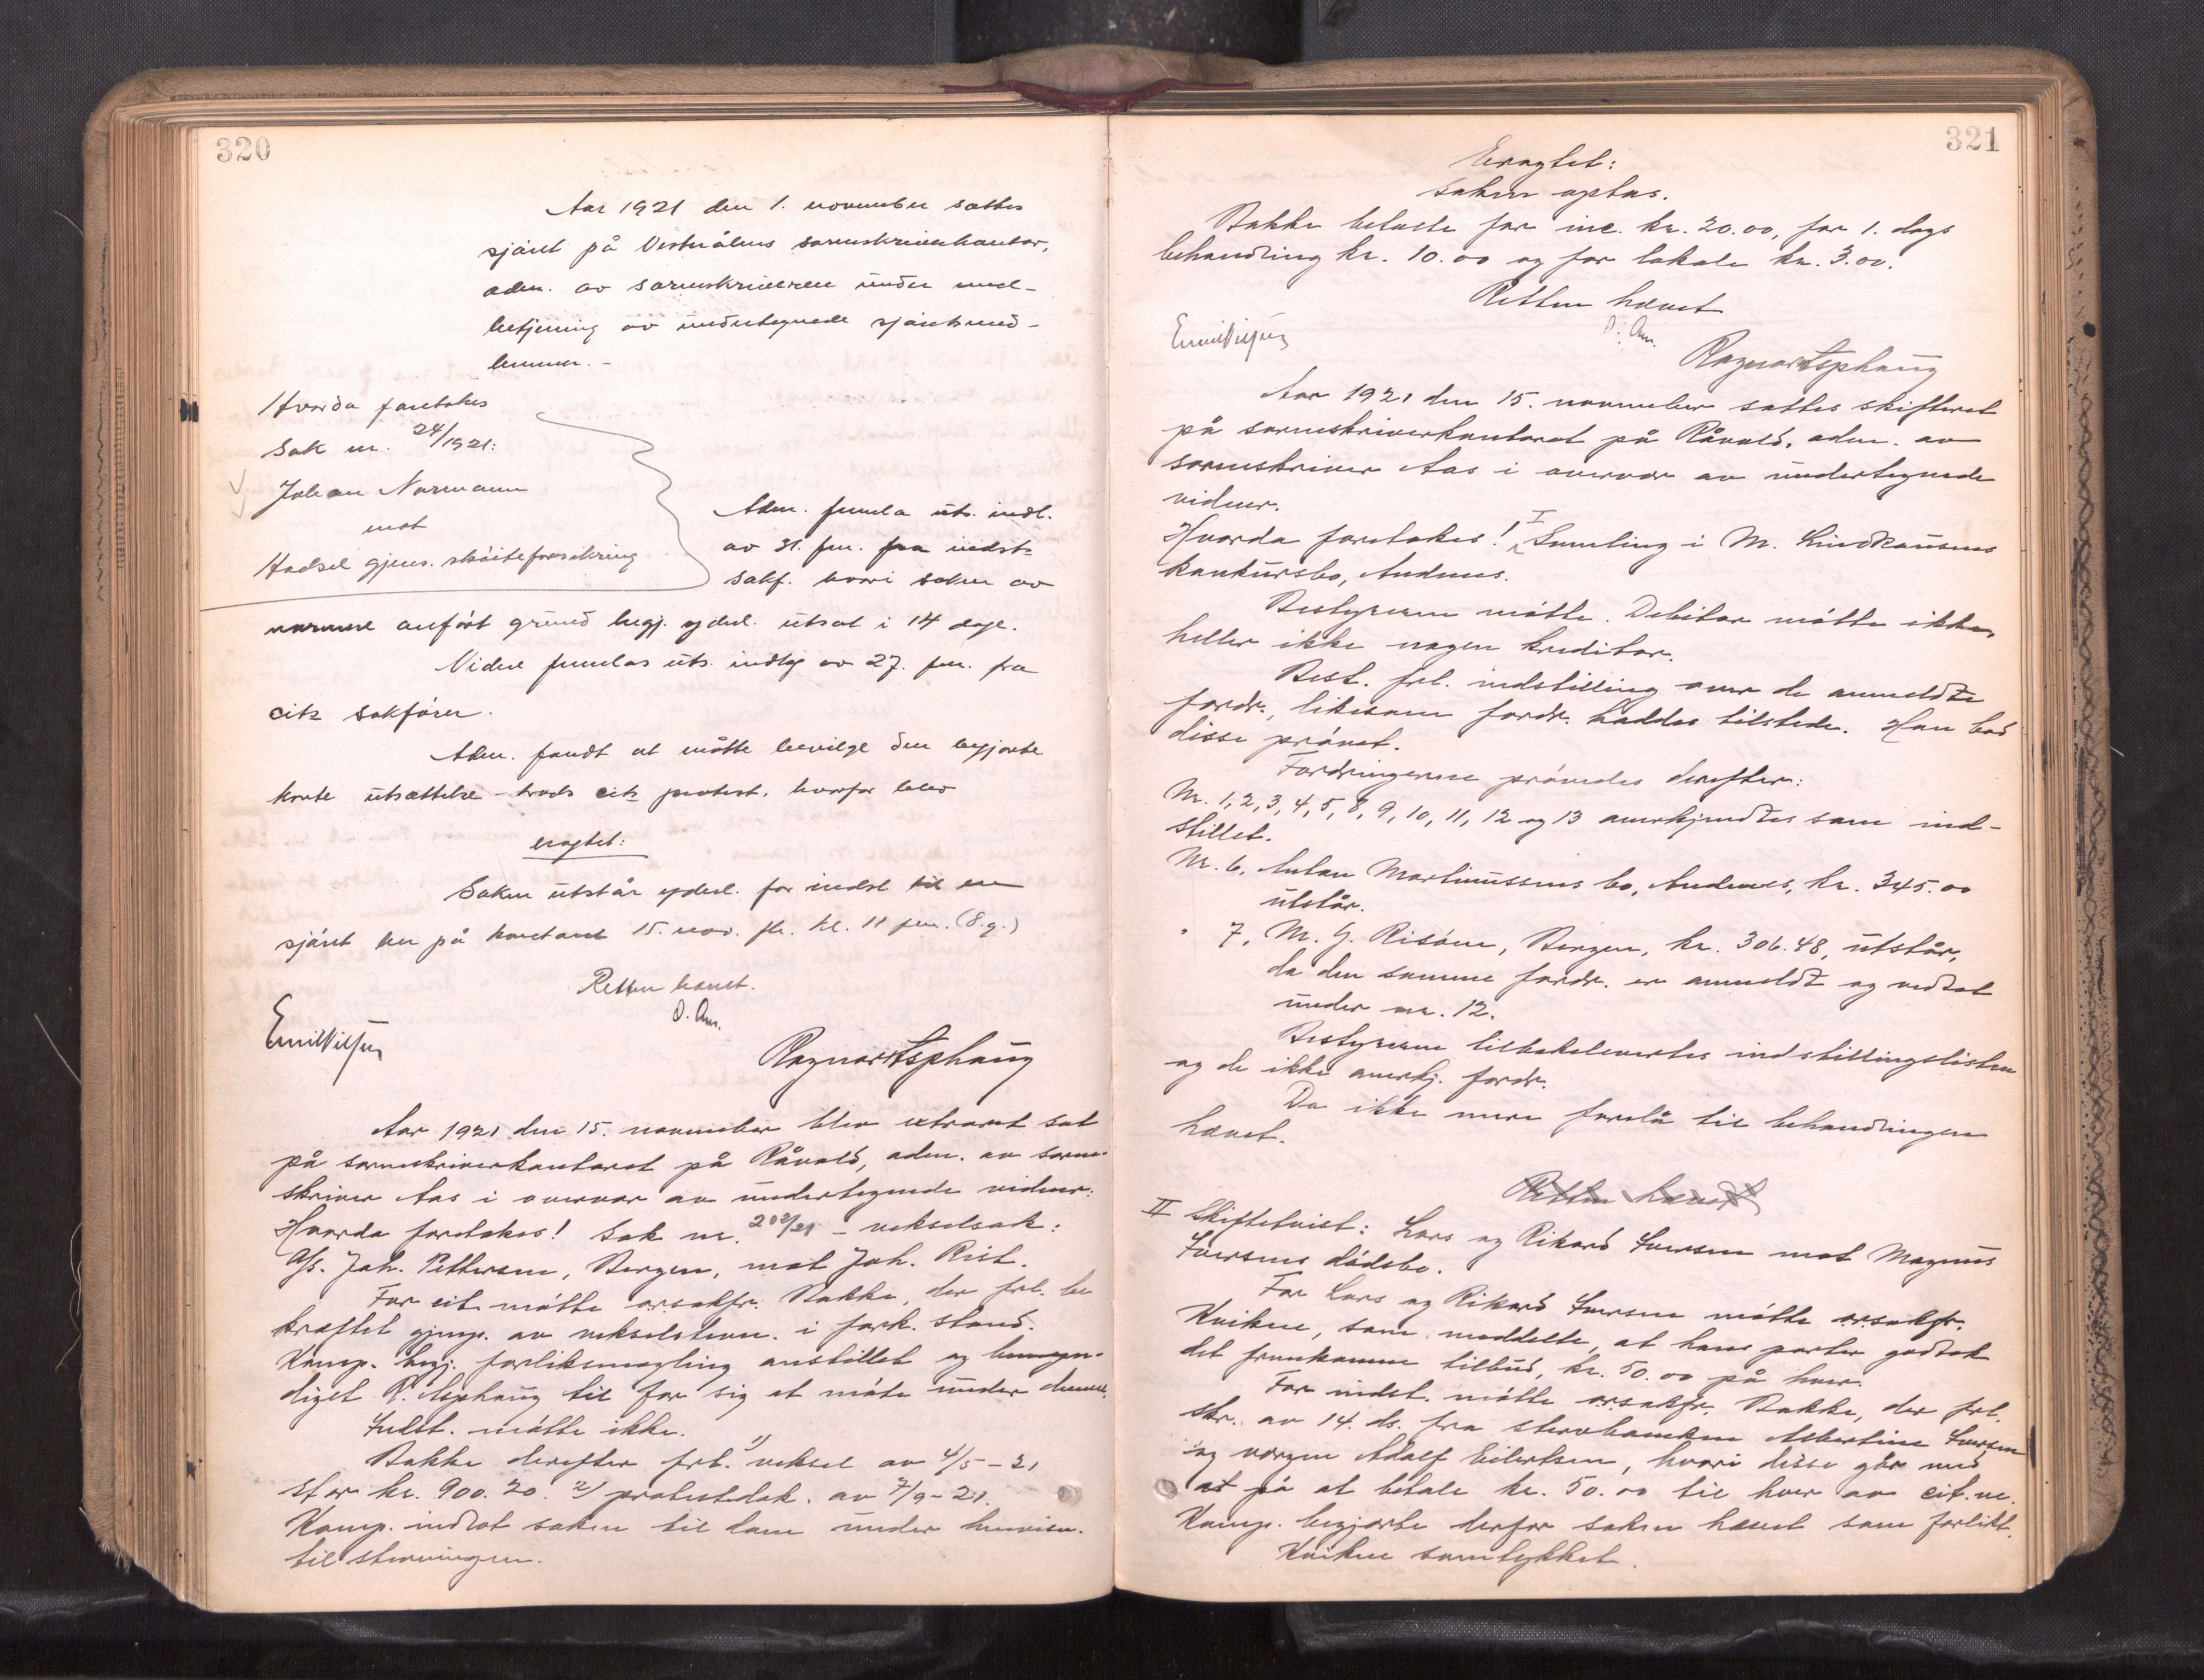 320
Aar 1921 den 1. november sattes
sjöret på Vesterålens sorenskriverkontor,
adm. av sorenskriveren under med-
betjening av undertegnede sjöretsmed-
lemmer. -
Hvorda foretokes
Sak nr. 24/1921:
Johan Normann
mot
Hadsel gjens. sköiteforsikring
Adm. freml. uts. indl.
av 31. fm. fra indst.
sakf. hvori saken av
nærmere anfört grund begj. yderl. utsat i 14 dage.
Videre fremlas uts. indlæg av 27. fm. fra
cits sakförer.
Adm. fandt at måtte bevilge den begjærte
korte utsættelse - trods cits protest, hvorfor blev
eragtet:
Saken utstår yderl. for indst. til en
sjöret her på kontoret 15. nov. fk. kl. 11 fm. (8.g.)
Retten hævet.
O. Aas.
Emil Nilsen
Ragnar Asphaug
Aar 1921 den 15. november blev extraret sat
på sorenskriverkontoret på Råvold, adm. av soren-
skriver Aas i overvær av undertegnede vidner:
Hvorda foretokes! Sak nr. 202/21 - vekselsak:
A/s. Joh. Pettersen, Bergen, mot Joh. Rist.
For cit. mötte o.r.sakfr. Bakke, der frl. be
kræftet gjenp. av vekselstevn. i fork. stand.
Komp. begj. forliksmægling anstillet og bemyn-
diget R. Asphaug til for sig at möte under denne.
Indst. mötte ikke.
Bakke derefter frl. 1) veksel av 4/5 - 21
stor kr. 900.20. 2) protestdok. av 7/9 - 21.
Komp. indlot saken til dom under henvisn.
til stevningen.
321
Eragtet:
Saken optas.
Bakke betalte for inc. kr. 20.00, for 1. dags
behandling kr. 10.00 og for lokale kr. 3.00.
Retten hævet
O. Aas.
Emil Nilsen
Ragnar Asphaug
Aar 1921 den 15. november sattes skifteret
på sorenskriverkontoret på Råvold, adm. av
sorenskriver Aas i overvær av undertegnede
vidner.
Hvorda foretokes! I Samling i M. Lindkausens
konkursbo, Andenes.
Bestyreren mötte. Debitor mötte ikke,
heller ikke nogen kreditor.
Best. frl. indstilling over de anmeldte
fordr., likesom fordr. haddes tilstede. Han bad
disse prövet.
Fordringerne prövedes derefter:
Nr. 1, 2, 3, 4, 5, 8, 9, 10, 11, 12 og 13 anerkjendtes som ind-
stillet.
Nr. 6, Anton Martinussens bo, Andenes, kr. 345.00
utstår.
" 7, M. G. Risöen, Bergen, kr. 306.48, utstår,
da den samme fordr. er anmeldt og vedtat
under nr. 12.
Bestyreren tilbakelevertes indstillingslisten
og de ikke anerkj. fordr.
Da ikke mere forelå til behandlingen
hævet.
Retten hævet
II Skiftetvist: Lars og Rikard Iversen mot Magnus
Iversens dödsbo.
For Lars og Rikard Iversen mötte o.r.sakfr.
Kvikne, som meddelte, at hans parter godtok
det fremkomne tilbud, kr. 50.00 på hver.
For indst. mötte o.r.sakfr. Bakke, der frl.
skr. av 14. ds. fra stervboenken Albertine Iversen
og vergen Adolf Eilertsen, hvori disse går med
at på at betale kr. 50.00 til hver av cit.ne.
Komp. begjærte derfor saken hævet som forlikt.
Kvikne samtykket.